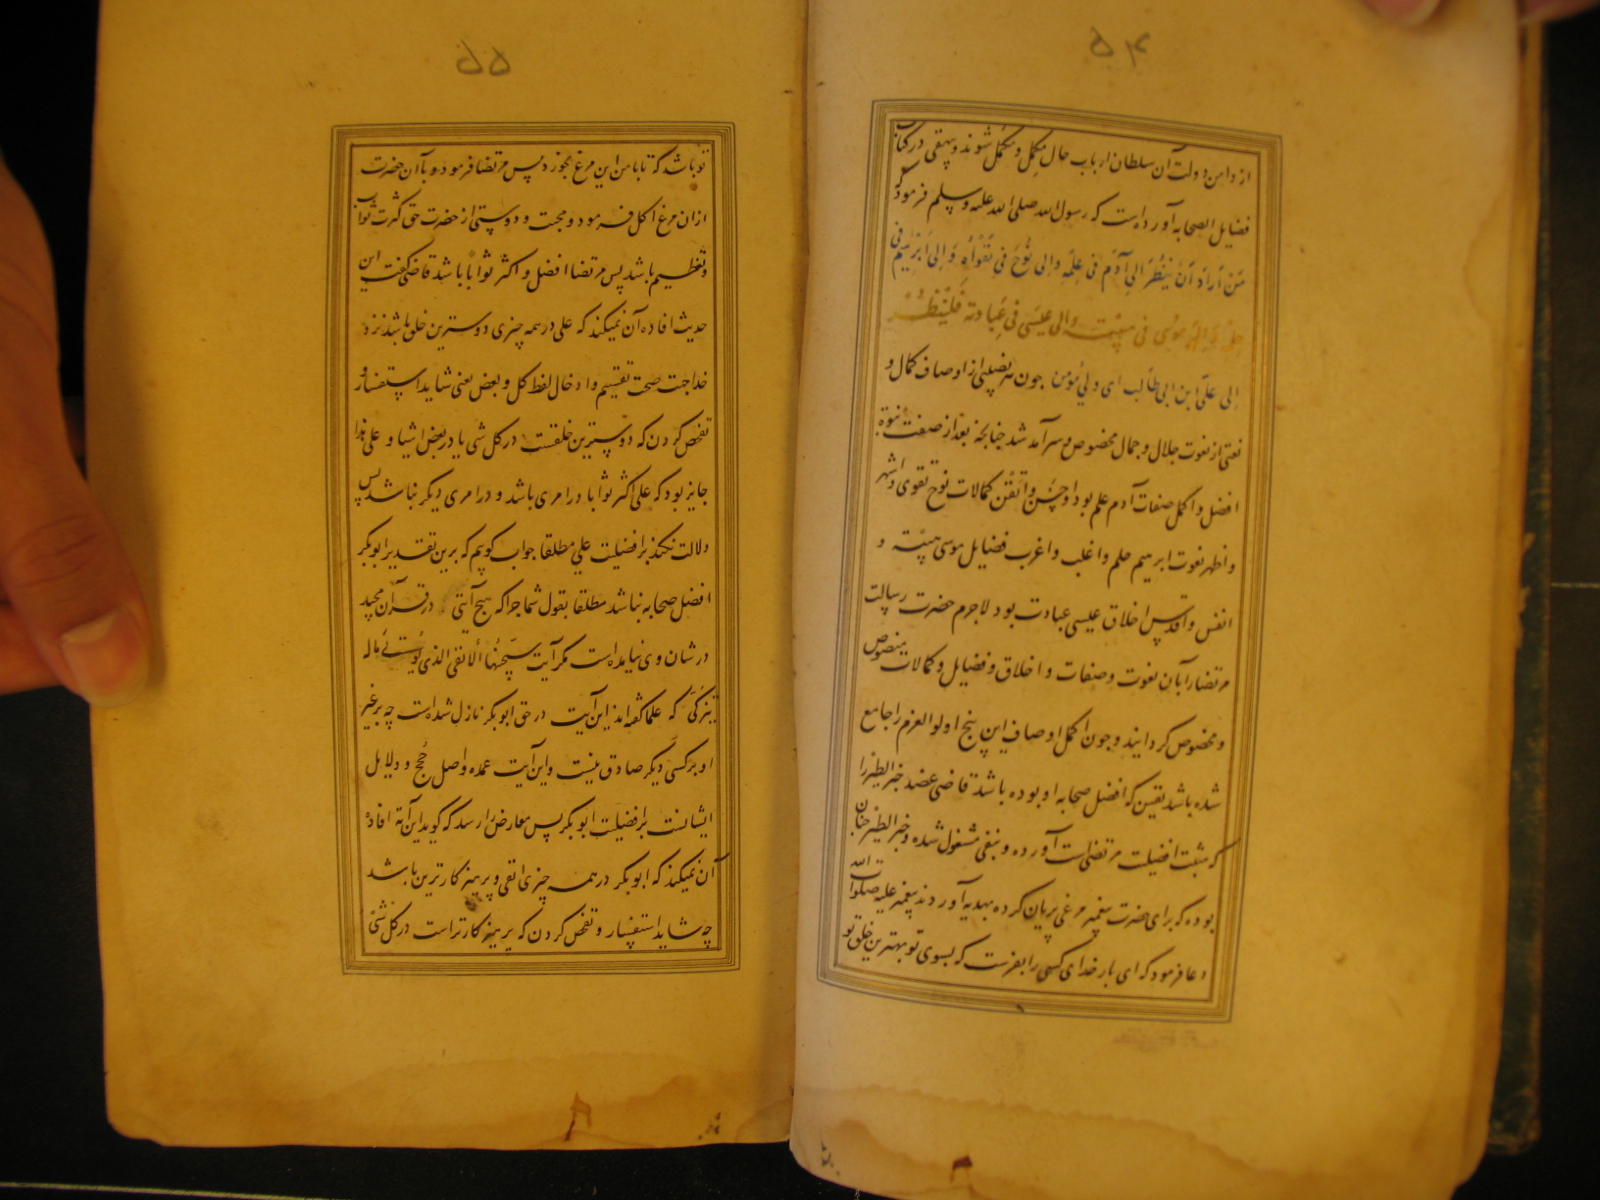 ۵۴
از دامن دولت آن سلطان ارباب حال مکمل و مکمل شوند و بیهقی در کتاب
فضایل الصحابه آورده است که رسول الله صلی الله علیه وسلم فرمود که
مَن اَرادَ اَن یَنظُرَ اِلی آدَم فی عِلمِه وَاِلی نُوحَ فی تَقواهُ وَاِلی اِبرٰهیمَ فی
حلمه وَاِلی مُوسی فی هیبته وَالی عیسَی فی عِبادته فَلیَنظُر
اِلی علی ابن ابی طالب ای ولی مؤمن چون هر فضیلتی از اوصاف کمال و
نعتی از نعوت جلال و جمال مخصوص و سرآمد شد چنانچه بعد از صفت نبوة
افضل و اکمل صفات آدم علم بود و احسن و اتقن کمالات نوح تقوی و اشهر
و اظهر نعوت ابرهیم حلم و اغلب و اغرب فضایل موسی هیبته و
انفس و اقدس اخلاق عیسی عبادت بود لاجرم حضرت رسالت
مرتضا را بآن نعوت و صفات و اخلاق و فضایل و کمالات منصوص
و مخصوص گردانیند و چون اکمل اوصاف این پنج اولو العزم را جامع
شده باشد یقین که افضل صحابه او بوده باشد قاضی عضد خبر الطیر را
که مثبت افضلیت مرتضی است آورده و بنفی مشغول شده و خبر الطیر چنان
بوده که برای حضرت پیغمبر مرغی بریان کرده بهدیه آوردند پیغمبر علیه صلوات الله
دعا فرمود که ای بار خدای کسی را بفرست که بسوی تو بهترین خلق تو
۵۵
تو باشد که تا با من این مرغ بخورد پس مرتضا فرمود و با آن حضرت
ازان مرغ اکل فرمود و محبت و دوستی از حضرت حق کثرت ثواب
و تعظیم باشد پس مرتضا افضل و اکثر ثوابا باشد قاضی گفت این
حدیث افاده آن نمیکند که علی در همه چیزی دوسترین خلق باشد نزد
خدا جت صحت تقسیم و ادخال لفظ کل و بعض یعنی شاید استفسار و
تفحص کردن که دوسترین خلقست در کل شی یا در بعض اشیا و علی هذا
جایز بود که علی اکثر ثوابا در امری باشد و در امری دیگر نباشد پس
دلالت نکند بر افضلیت علی مطلقا جواب گویم که برین تقدیر ابوبکر
افضل صحابه نباشد مطلقا بقول شما چرا که هیچ آیتی در قرآن مجید
در شان وی نیامده است مگر آیت سَیُجَنَّبُهَا الاَتقی الذی یُؤتی مَالَه
یَتَزَکّی که علما گفته اند این آیت در حق ابوبکر نازل شده است چه بر غیر
او بر کسی دیگر صادق نیست و این آیت عمده و اصل حُجج و دلایل
ایشانست بر افضلیت ابوبکر پس معارض را رسد که گوید این آیة افاده
آن نمیکند که ابوبکر در همه چیزی اتقی و پرهیز کارترین باشد
چه شاید استفسار و تفحص کردن که پرهیز کارتر است در کل شئ